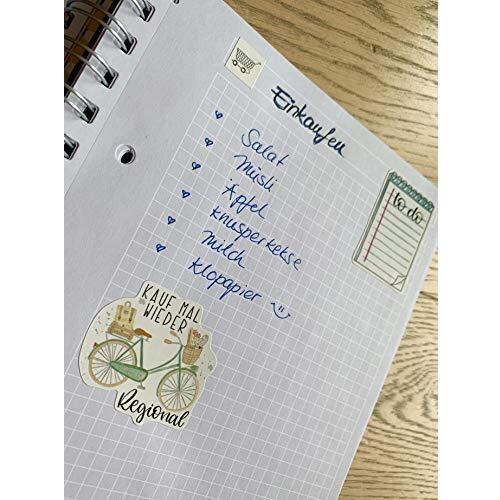 Einkaufen
Salat
Müsli
Äpfel
Knusperkekse
Milch
Klopapier
to do
KAUF MAL
WIEDER
Regional